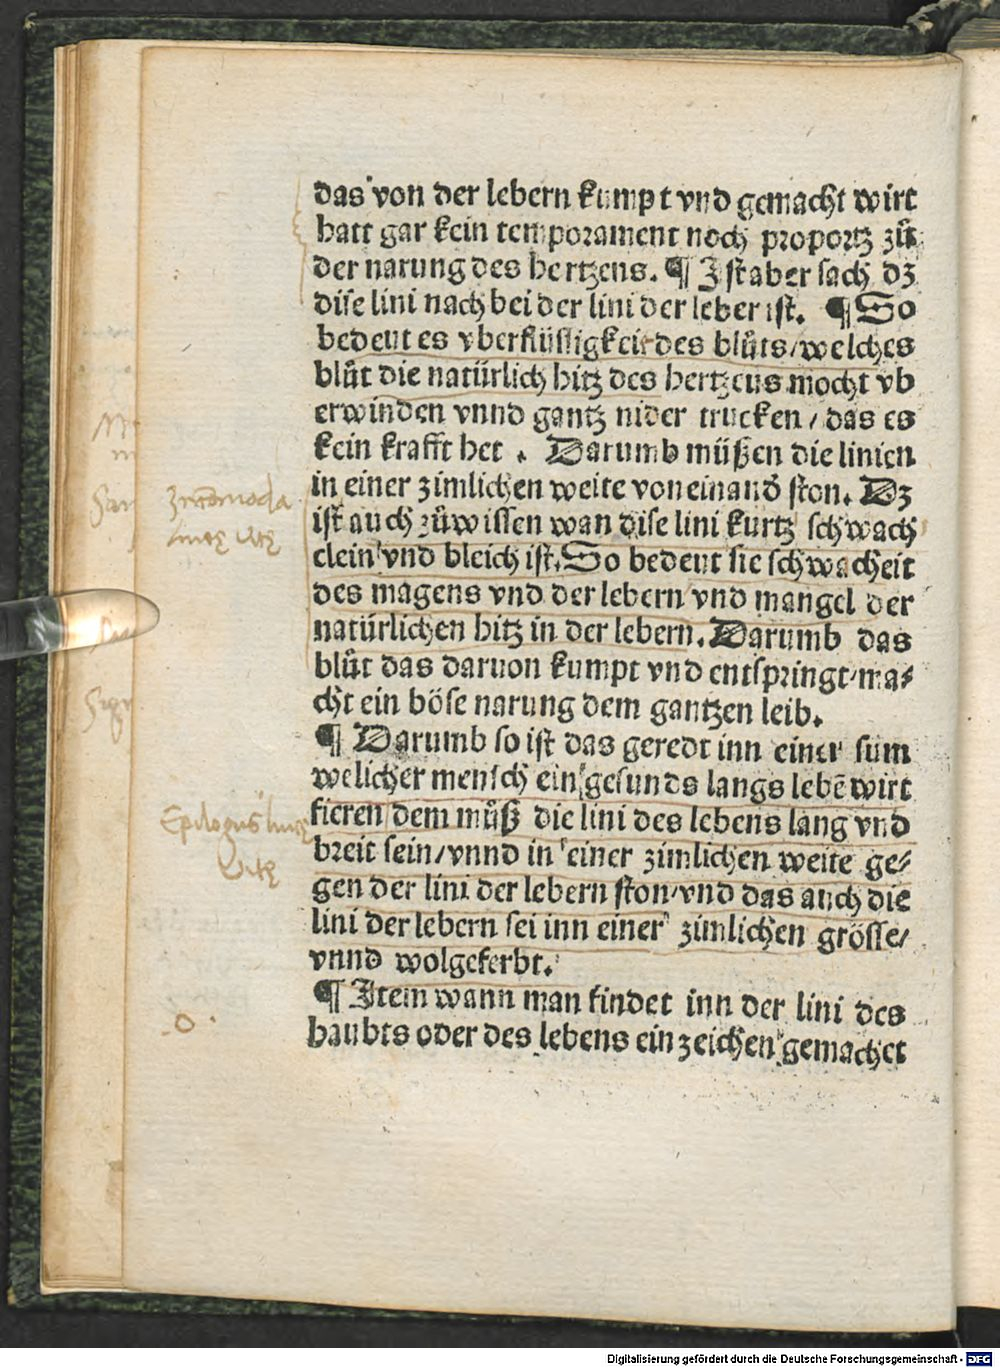 das von der lebern kumpt vnd gemacht wirt
hatt gar kein temporament noch proportz zuͦ
der narung des hertzens. ¶ Ist aber sach dz
dise lini nach bei der lini der leber ist. ¶ So
bedeut es vberflüssigkeit des bluͦts/welches
bluͦt die natürlich hitz des hertzens mocht vb
erwinden vnnd gantz nider trucken / das es
kein krafft het . Darumb müßen die linien
in einer zimlichen weite von einand̛ ston. Dz
ist auch zuͦwissen wan dise lini kurtz schwach
clein vnd bleich ist. So bedeut sie schwacheit
des magens vnd der lebern vnd mangel der
natürlichen hitz in der lebern. Darumb das
bluͦt das daruon kumpt vnd entspringt/ma⸗
cht ein böse narung dem gantzen leib.
¶ Darumb so ist das geredt inn einer sum
welicher mensch ein gesunds langs lebē wirt
fieren dem muͦß die lini des lebens lang vnd
breit sein/vnnd in einer zimlichen weite ge⸗
gen der lini der lebern ston/vnd das auch die
lini der lebern sei inn einer zimlichen grösse/
vnnd wolgeferbt.
¶ Item wann man findet inn der lini des
haubts oder des lebens ein zeichen gemachet
Epilogus
Digitalisierung gefördert durch die Deutsche Forschungsgemeinschaft - DFG